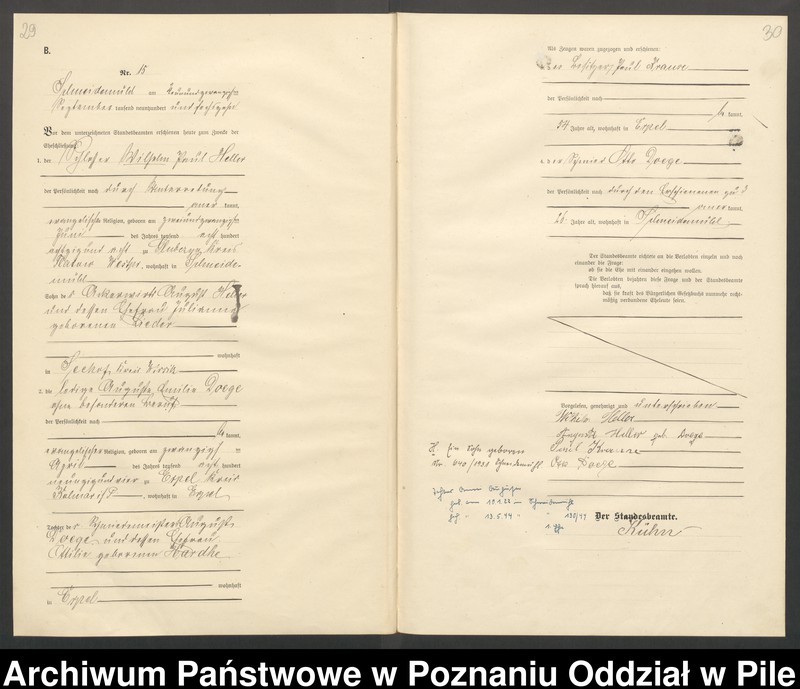 29
B.
Nr. 15
Schneidemühl am neunundzwanzigsten
September tausend neunhundert und sechszehn
Vor dem unterzeichneten Standesbeamten erschienen heute zum Zwecke der
Eheschließung:
1. der Schlosser Wilhelm Paul Heller
der Persönlichkeit nach durch Unterredung
aner kannt,
evangelischer Religion, geboren am zweiundzwanzigsten
Juni des Jahres tausend acht hundert
achtzig und acht zu Kreis
wohnhaft in Schneide-
mühl
Sohn des Ackerwirts August Heller
und dessen Ehefrau Julianna
geborenen
wohnhaft
in Seehof, Kreis Wirsitz
2. die ledige Auguste Emilie Doege
ohne besonderen Beruf
der Persönlichkeit nach
be kannt,
evangelischer Religion, geboren am zwanzigsten
April des Jahres tausend acht hundert
neunzig und vier zu Erpel Kreis
Kolmar i/P, wohnhaft in Erpel
Tochter des August
Doege und dessen Ehefrau
Ottilie geborenen
wohnhaft
in Erpel
30
Als Zeugen waren zugezogen und erschienen:
der Besitzer Paul Krause
der Persönlichkeit nach
be kannt,
54 Jahre alt, wohnhaft in Erpel
der Schmied Otto Doege
der Persönlichkeit nach durch den Erschienenen zu 3
aner kannt,
26 Jahre alt, wohnhaft in Schneidemühl
Der Standesbeamte richtete an die Verlobten einzeln und nach
einander die Frage:
ob sie die Ehe mit einander eingehen wollen.
Die Verlobten bejahten diese Frage und der Standesbeamte
sprach hierauf aus,
daß sie kraft des Bürgerlichen Gesetzbuchs nunmehr recht-
mäßig verbundene Eheleute seien.
Vorgelesen, genehmigt und unterschrieben
Wilhelm Heller
Auguste Heller geb. Doege
Paul Krause
Otto Doege
Ein Sohn geboren
Nr. Schneidemühl
geb. am in Schneidemühl
Der Standesbeamte.
Kühn
Archiwum Państwowe w Poznaniu Oddział w Pile